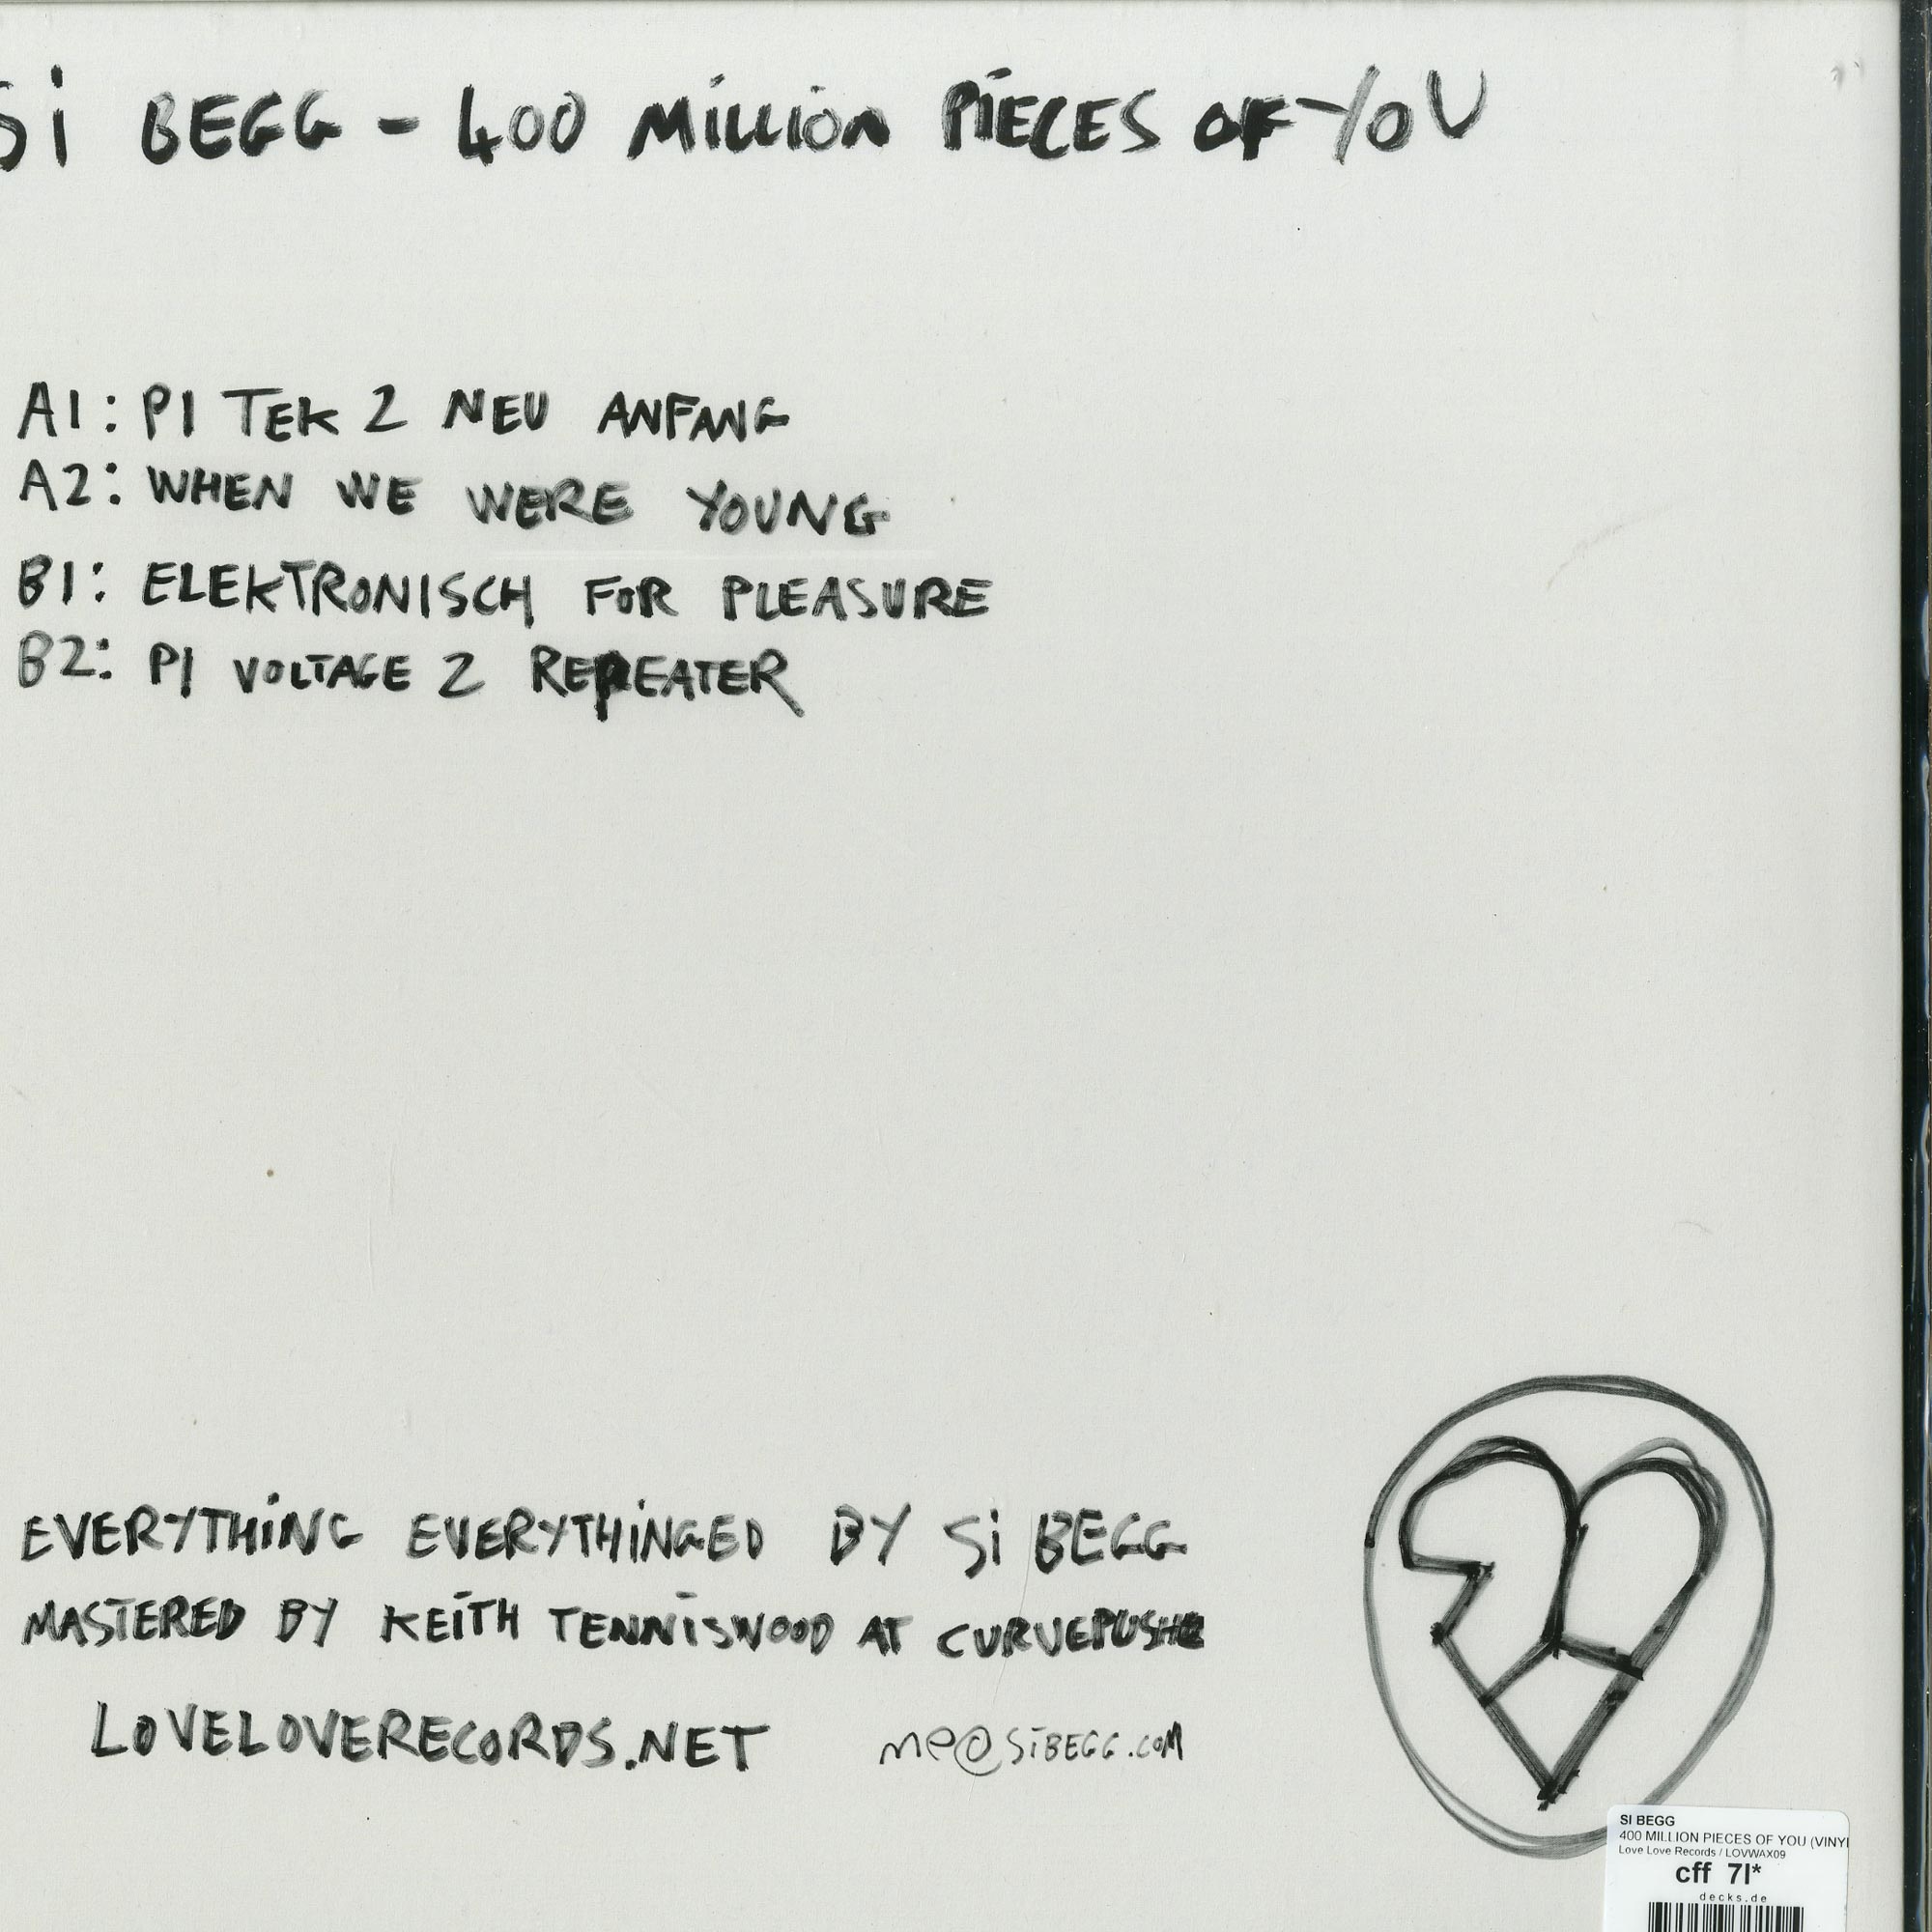 Si BEGG - 400 MiLLiON PiECES OF YOU
A1: PI TEK 2 NEU ANFANG
A2: WHEN WE WERE YOUNG
B1: ELEKTRONISCH FOR PLEASURE
B2: PI VOLTAGE 2 REPEATER
EVERYTHiNG EVERYTHiNGED BY Si BEGG
MASTERED BY KEiTH TENNiSWOOD AT CURVEPUSHER
LOVELOVERECORDS.NET me@SiBEGG.COM
SI BEGG
400 MILLION PIECES OF YOU (VINYL
Love Love Records / LOVWAX09
cff 7l*
decks.de